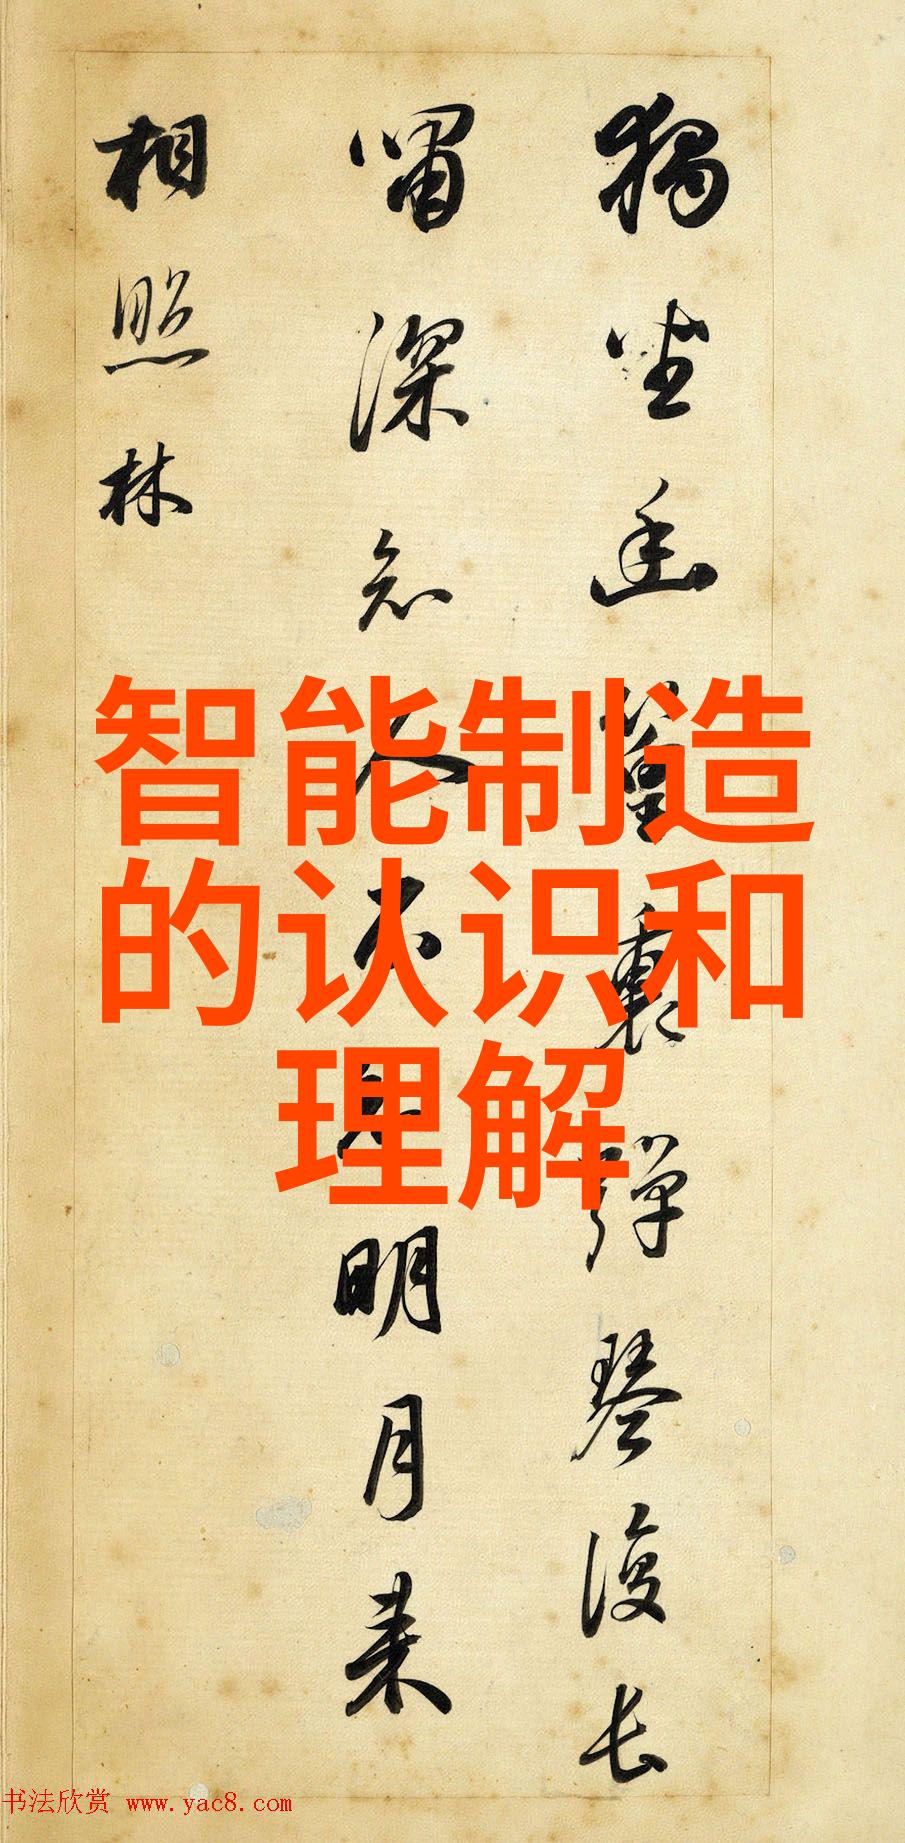 獨坐幽篁裏彈琴復長
嘯深知人不知明月来
相照林
智能制造
的认识和
理解
书法欣赏 www.yac8.com